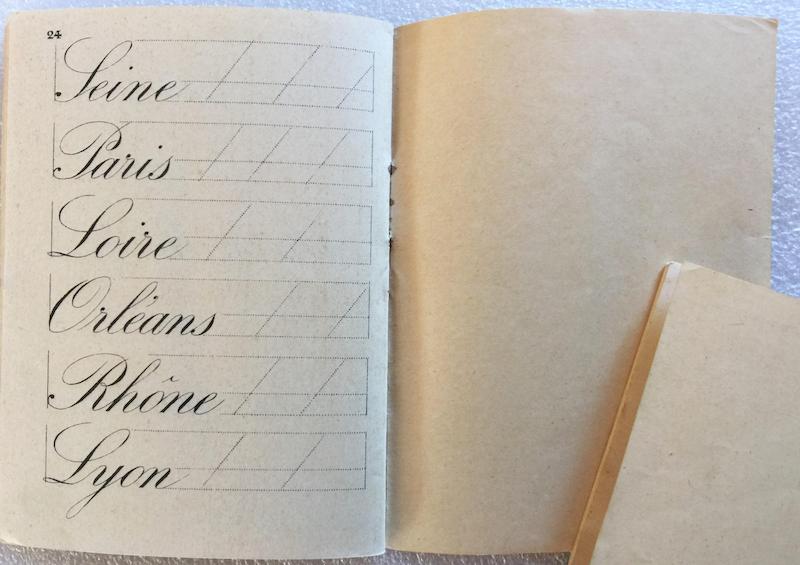 24
Seine
Paris
Loire
Orléans
Rhône
Lyon